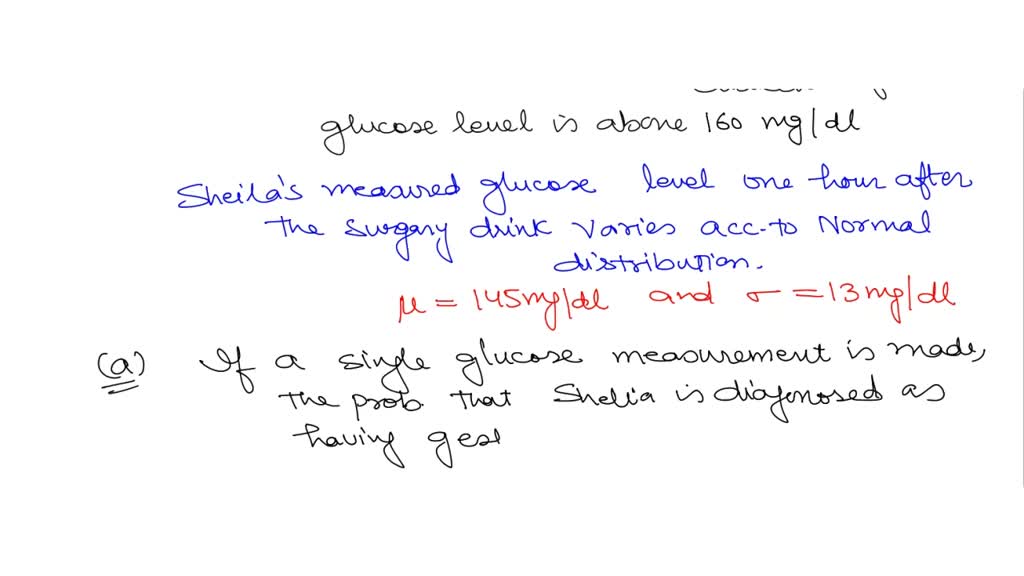 glucose level is above 160 mg/dl
Sheila's measured glucose level one hour after
the surgary drink varies acc. to Normal
distribution.
μ = 145mg/dl and σ = 13mg/dl
(a) If a single glucose measurement is made,
the prob that Shelia is diagnosed as
having ges